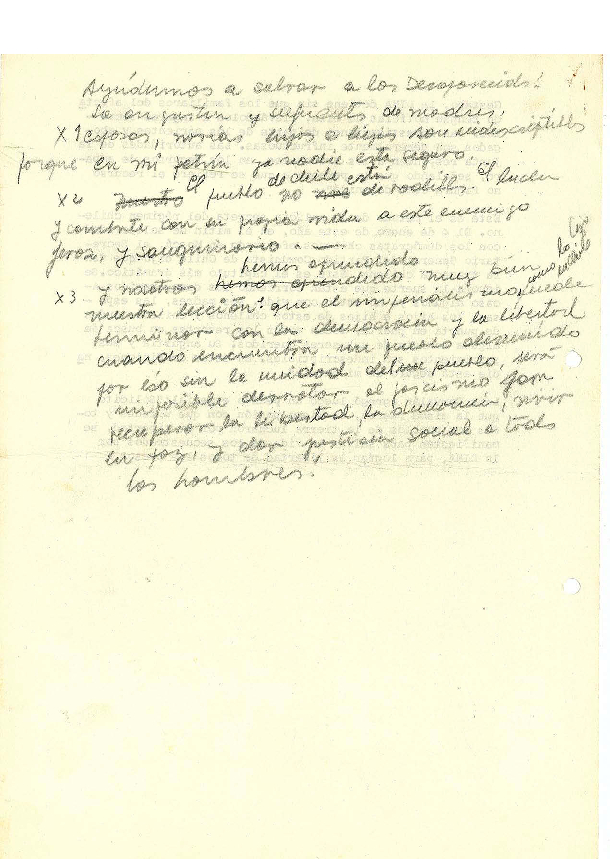 Ayúdemos a salvar a los Desaparecidos!
La angustia y de madres,
X 1 esposas, novias hijos e hijas son indescriptibles
porque en mi patria ya nadie está seguro.
X 2 El pueblo de chile no está de rodillas. El lucha
y combate con su propia vida a este enemigo
feroz, y sanguinario. —
hemos aprendido
X 3 y nosotros hemos aprendido muy bien como lo
nuestra lección: que el imperialismo puede
terminar con la democracia y la libertad
cuando encuentra un pueblo desunido
por eso sin la unidad del pueblo, será
imposible derrotar al fascismo para
recuperar la libertad, la democracia, vivir
en paz, y dar justicia social a todos
los hombres.